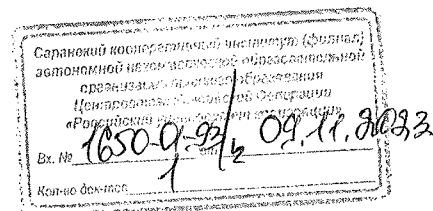 Саранский кооперативный институт (филиал)
автономной некоммерческой образовательной
организации высшего образования
Центросоюза Российской Федерации
«Российский университет кооперации»
Вх. № 1650-01-93/2 09.11.2023
Кол-во док-тов 1